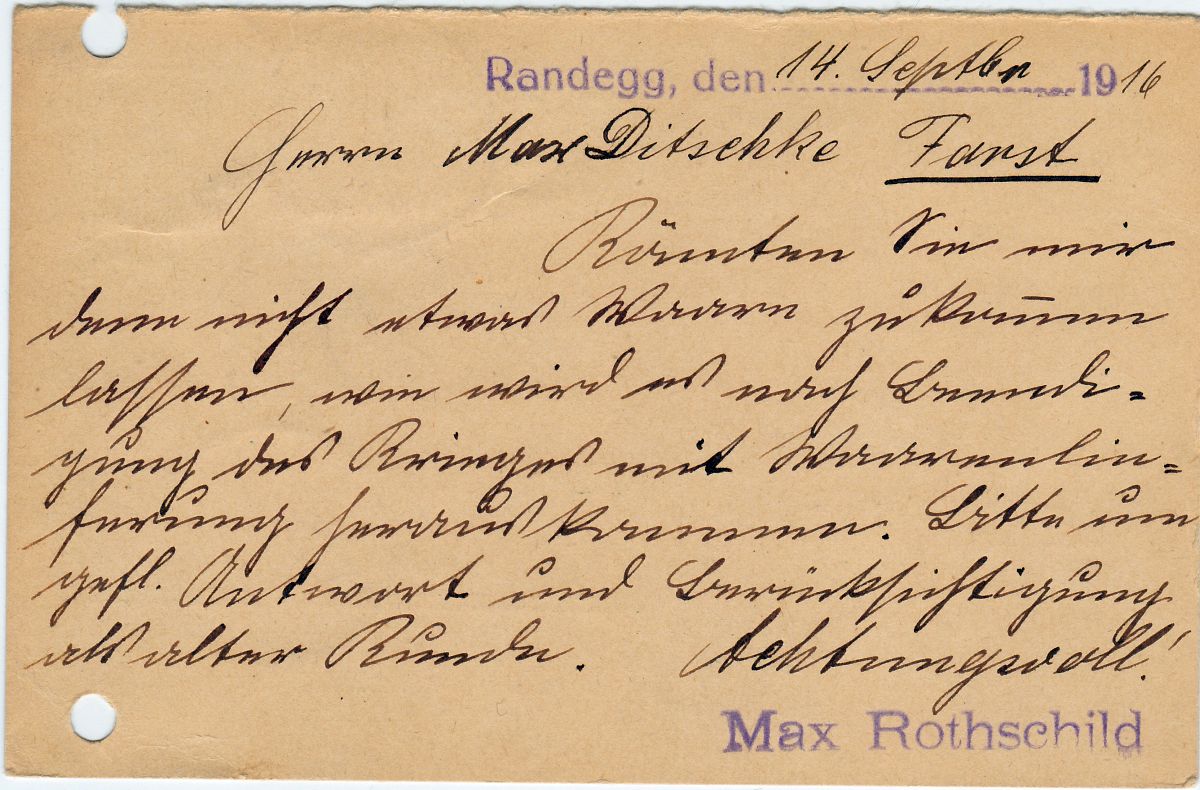 Randegg, den 14. Septbr 1916
Herrn Max Ditschke Forst
Könnten Sie mir
denn nicht etwas Waare zukom̄en
lassen, wie wird es nach Beendi=
gung des Krieges mit Waarenlie=
ferung herauskommen. Bitte um
gefl. Antwort und Berücksichtigung
als alter Kunde. Achtungsvoll!
Max Rothschild